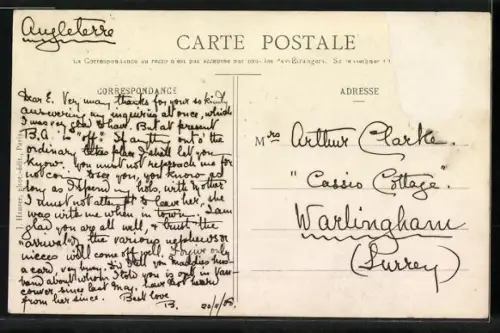 Angleterre
CARTE POSTALE
La Correspondance au recto n'est pas acceptée par tous les Pays Étrangers. Se renseigner à la
CORRESPONDANCE
ADRESSE
Dear E. Very many thanks for your so kindly
answering my inquiries at once, which
I was very glad to have. But at present
B.A. is "off": If anything out o' the
ordinary takes place I shall let you
know. You must not reproach me for
not coming to see you, you know so
long as I spend my hols. with Mother
I must not attempt to leave her, she
was with me when in town. I am
glad you are all well, & trust the
"arrivals" of the various nephews or
nieces will come off well. Forgive only
a card, very busy. Did I tell you Maddies husband
band about whom I told you is ill in Vancouver,
couver, since last May. Have not heard
from her since. Best love
B. 20/9/08.
Mrs Arthur Clarke
"Cassio Cottage"
Warlingham
(Surrey)